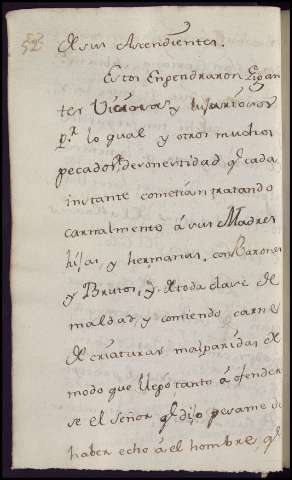 de sus Ascendientes.
Estos Engendraron Gigan
tes Viciosos y Luxuriosos
p.r lo qual y otros muchos
pecados, deshonestidad q.e cada
instante cometian tratando
carnalmente á sus Madres
hijas, y hermanas, con Barones
y Brutos, y de toda clase de
maldad, y comiendo carne
de criaturas malparidas de
modo que llego tanto á ofender
se el Señor q.e dijo pesame de
haber echo á el hombre, q.e